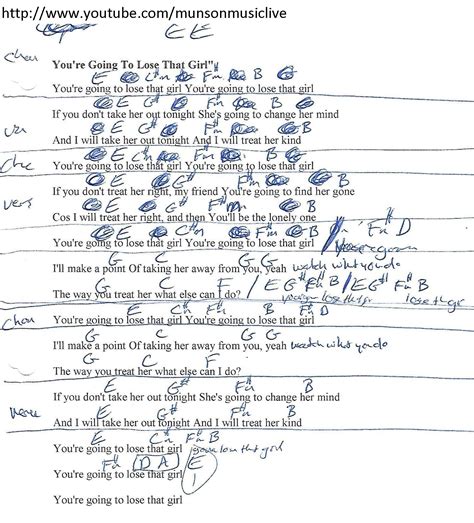 http://www.youtube.com/munsonmusiclive
E E
You're Going To Lose That Girl"
E C#m F#m B
You're going to lose that girl You're going to lose that girl
E G# F#m B
If you don't take her out tonight She's going to change her mind
ver E G# F#m B
And I will take her out tonight And I will treat her kind
E C#m F#m B
You're going to lose that girl You're going to lose that girl
E G# F#m B
If you don't treat her right, my friend You're going to find her gone
vers E G# F#m B
Cos I will treat her right, and then You'll be the lonely one
E C#m F#m D
You're going to lose that girl You're going to lose that girl
G C G G
I'll make a point Of taking her away from you, yeah watch what you do
G C F / E G# F#m B / E G# F# B
The way you treat her what else can I do? lose that girl
E C#m F#m B F# D
You're going to lose that girl You're going to lose that girl
G C G G
I'll make a point Of taking her away from you, yeah watch what you do
G C F
The way you treat her what else can I do?
E G# F#m B
If you don't take her out tonight She's going to change her mind
E G# F#m B
And I will take her out tonight And I will treat her kind
E C#m F#m B
You're going to lose that girl lose that girl
F#m D A E
You're going to lose that girl
You're going to lose that girl